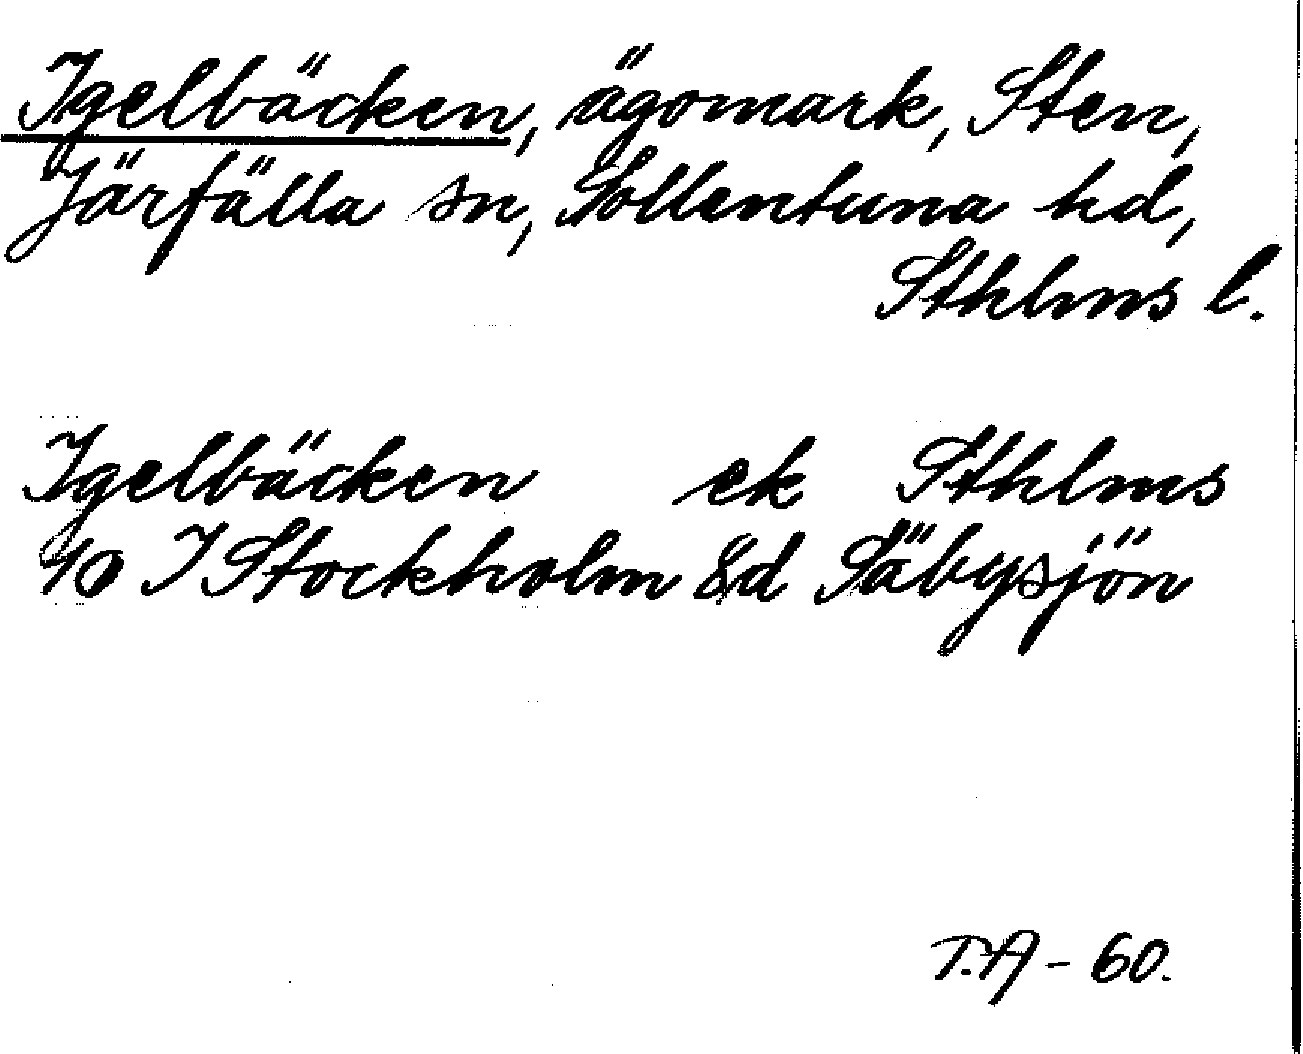 Igelbäcken, ägomark, Sten,
Järfälla sn, Sollentuna hd,
Sthlms l.
Igelbäcken ek Sthlms
10 I Stockholm 8d Säbysjön
T.A - 60.